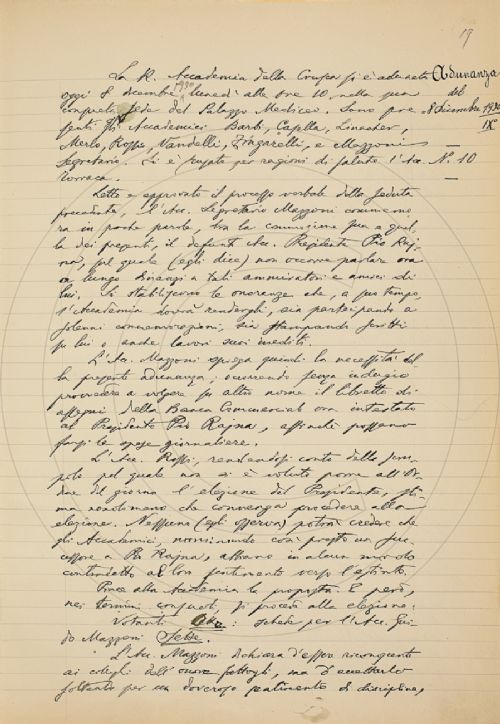 19
La R. Accademia della Crusca si è adunata
oggi 8 dicembre 1930, lunedì alle ore 10, nella sua
consueta sede del Palazzo Mediceo. Sono pre-
senti gli Accademici Barbi, Linacher,
Merlo, Rossi, Vandelli, Zingarelli, e Mazzoni
Segretario. Si è scusato per ragioni di salute l'Acc.
Torraca.
Adunanza
del
8 Dicembre 1930
IX°
N. 10
Letto e approvato il processo verbale della seduta
precedente, l'Acc. Segretario Mazzoni commemo-
ra in poche parole, tra la commozione sua e quel-
la dei presenti, il defunto Acc. Presidente Pio Raj-
na, pel quale (egli dice) non occorre parlare ora
a lungo dinanzi a tali ammiratori e amici di
lui. Si stabiliscono le onoranze che, a suo tempo,
l'Accademia dovrà rendergli, sia partecipando a
solenni commemorazioni, sia stampando scritti
su lui o anche lavori suoi inediti.
L'Acc. Mazzoni spiega quindi la necessità del-
la presente adunanza, occorrendo senza indugio
provvedere a volgere in altro nome il libretto di
assegni della Banca Commerciale ora intestato
al Presidente Pio Rajna, affinchè possano
farsi le spese giornaliere.
L'Acc. Rossi, rendendosi conto dello scru-
polo pel quale non si è voluto porre all'Or-
dine del giorno l'elezione del Presidente, sti-
ma nondimeno che convenga procedere alla
elezione. Nessuno (egli osserva) potrà credere che
gli Accademici, nominando così presto un suc-
cessore a Pio Rajna, abbiano in alcun modo
contradetto al lor sentimento verso l'estinto.
Piace alla Accademia la proposta. E però,
nei termini consueti, si procede alla elezione.
Votanti : schede per l'Acc. Gui-
do Mazzoni Sette.
L'Acc. Mazzoni dichiara d'essere riconoscente
ai colleghi dell'onore fattogli, ma d'accettarlo
soltanto per un doveroso sentimento di disciplina,